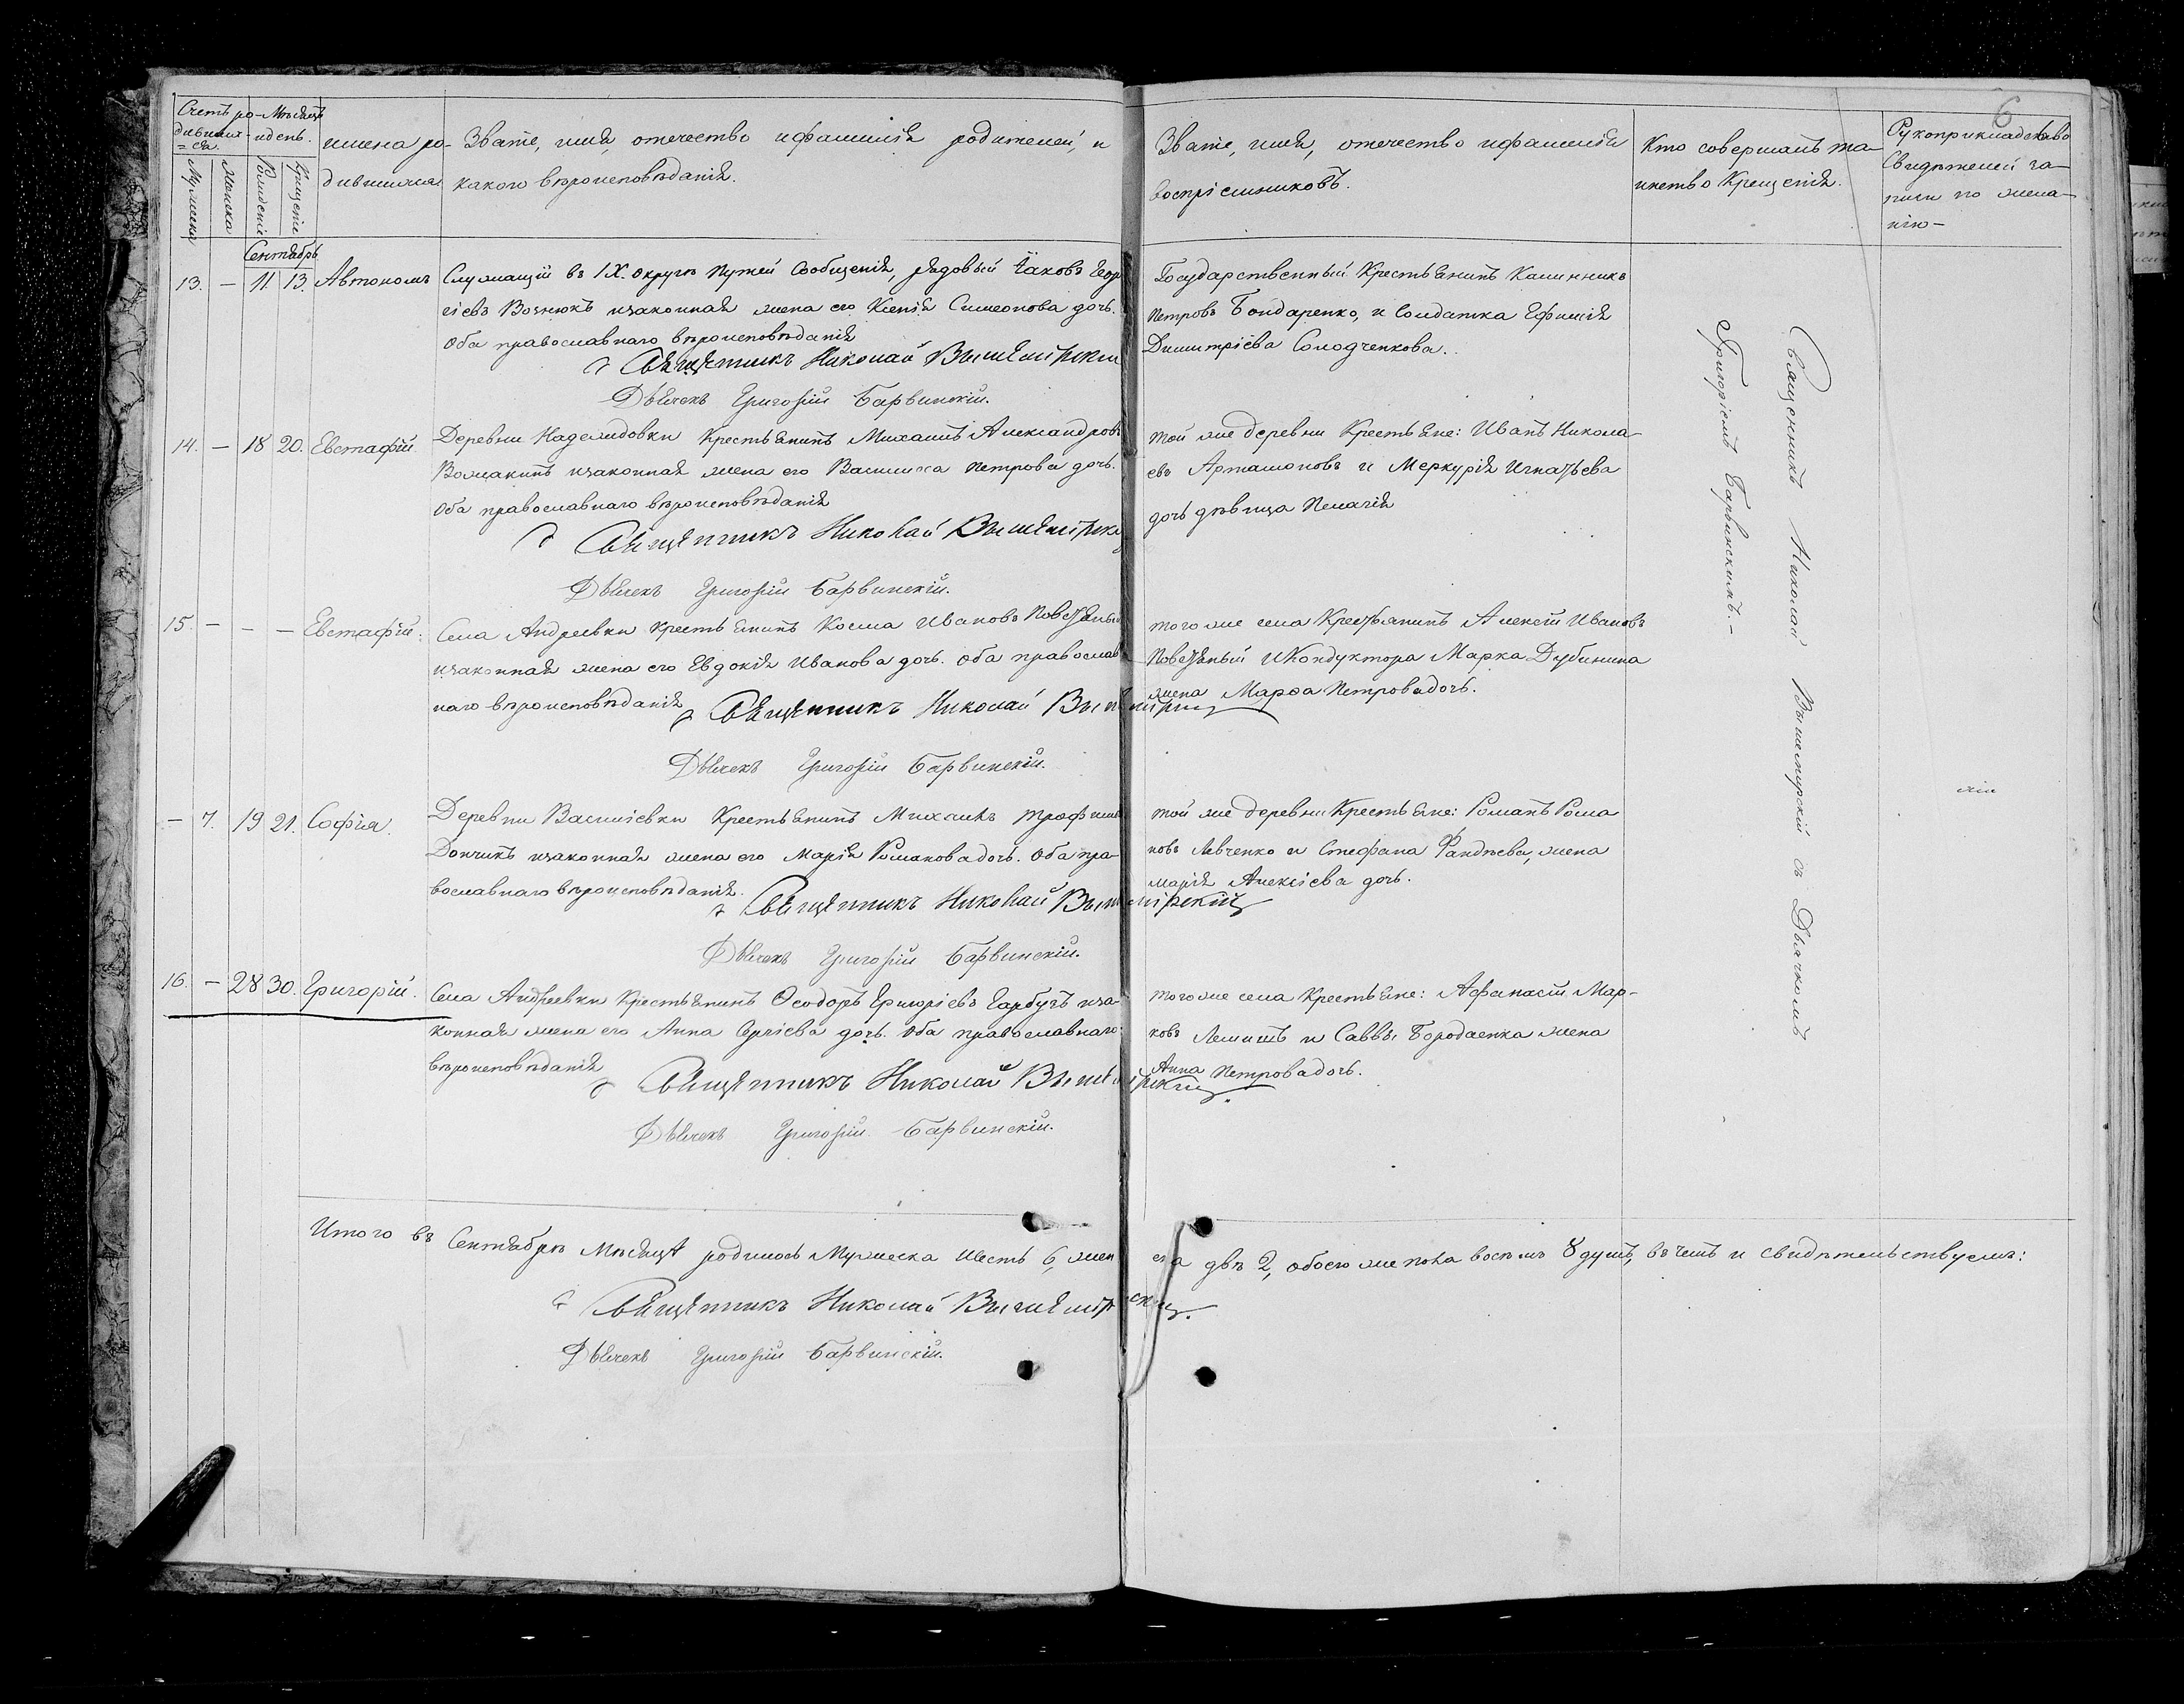 6
Счетъ ро-
дивших-
=ся.
Мѣсяцъ
и день.
Мужеска
Женска
Рожденіе
Крещеніе
имена ро-
дившихся.
Званіе, имя, отечество и фамилія родителей, и
какого вѣроисповѣданія.
Званіе, имя, отечество и фамилія
воспріемниковъ.
Кто совершалъ та-
инство Крещенія.
Рукоприкладство
Свидѣтелей за-
писи по жела-
нію-
Сентябрь
13. - 11. 13. Автономъ
Служащій въ IX. округѣ Путей Сообщенія, рядовый Іаковъ Геор
гіевъ Вознюкъ и законная жена его Ксенія Симеонова дочь.
Оба православнаго вѣроисповѣданія
Священникъ Николай Вышемірскій
Дьячекъ Григорій Барвинскій.
Государственный Крестьянинъ Калинникъ
Петровъ Бондаренко, и Солдатка Ефимія
Димитріева Солодченкова.
14. - 18 20. Евстафій
Деревни Надеждовки Крестьянинъ Михаилъ Александровъ
и законная жена его Василиса Петрова дочь.
Оба православнаго вѣроисповѣданія
Священникъ Николай Вышемірскій
Дьячекъ Григорій Барвинскій.
той же деревни Крестьяне: Иванъ Никола-
евъ Арташоновъ и Меркурія Игнатьева
дочь дѣвица Пелагія
15. - - - Евстафій.
Села Андреевки Крестьянинъ Косма Ивановъ
и законная жена его Евдокія Иванова дочь. Оба православ
наго вѣроисповѣданія
Священникъ Николай Вышемірскій
Дьячекъ Григорій Барвинскій.
того же села Крестьянинъ Алексій Ивановъ
и Кондуктора Марка Дубинина
жена Марѳа Петрова дочь.
- 7. 19 21. Софія.
Деревни Василіевки Крестьянинъ Михаилъ Трофимовъ
Дончикъ и законная жена его Марія Романова дочь. Оба пра-
вославнаго вѣроисповѣданія.
Священникъ Николай Вышемірскій
Дьячекъ Григорій Барвинскій.
той же деревни Крестьяне: Романъ Рома
новъ Левченко и Стефана Фандѣева, жена
Марія Алексіева дочь.
16. - 28 30. Григорій.
Села Андреевки Крестьянинъ Ѳеодоръ Григоріевъ Гарбузъ и за-
конная жена его Анна Сергіева дочь. Оба православнаго
вѣроисповѣданія
Священникъ Николай Вышемірскій
Дьячекъ Григорій Барвинскій.
того же села Крестьяне: Афанасій Мар-
ковъ Лемишъ и Саввы Бородаенка жена
Анна Петрова дочь.
Священникъ Николай Вышемирскій съ Дьячкомъ
Григоріемъ Барвинскимъ.-
Итого въ Сентябрѣ Мѣсяцѣ родилось Мужеска шесть 6, жен ска двѣ 2, обоего же пола восемь 8 душъ, въ чемъ и свидѣтельствуемъ:
Священникъ Николай Вышемірскій.
Дьячекъ Григорій Барвинскій.